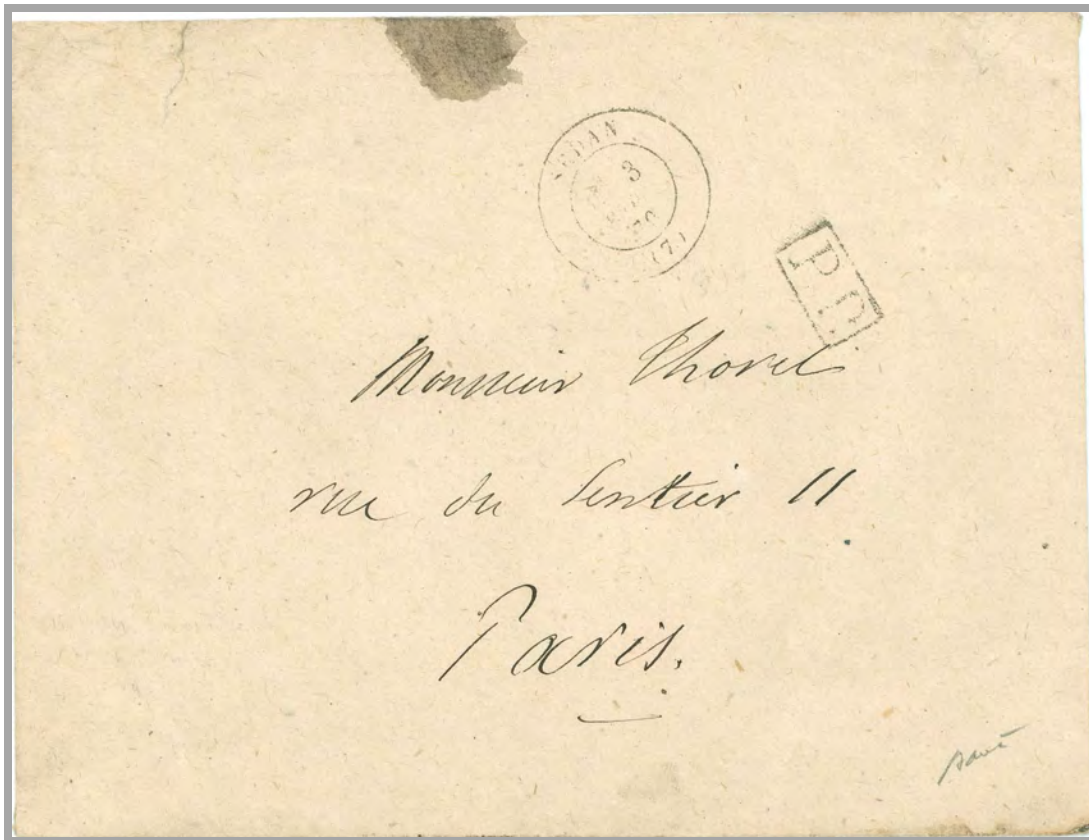 SEDAN
3
70
(7)
P.P.
Monsieur Thorel
rue du Sentier 11
Paris.